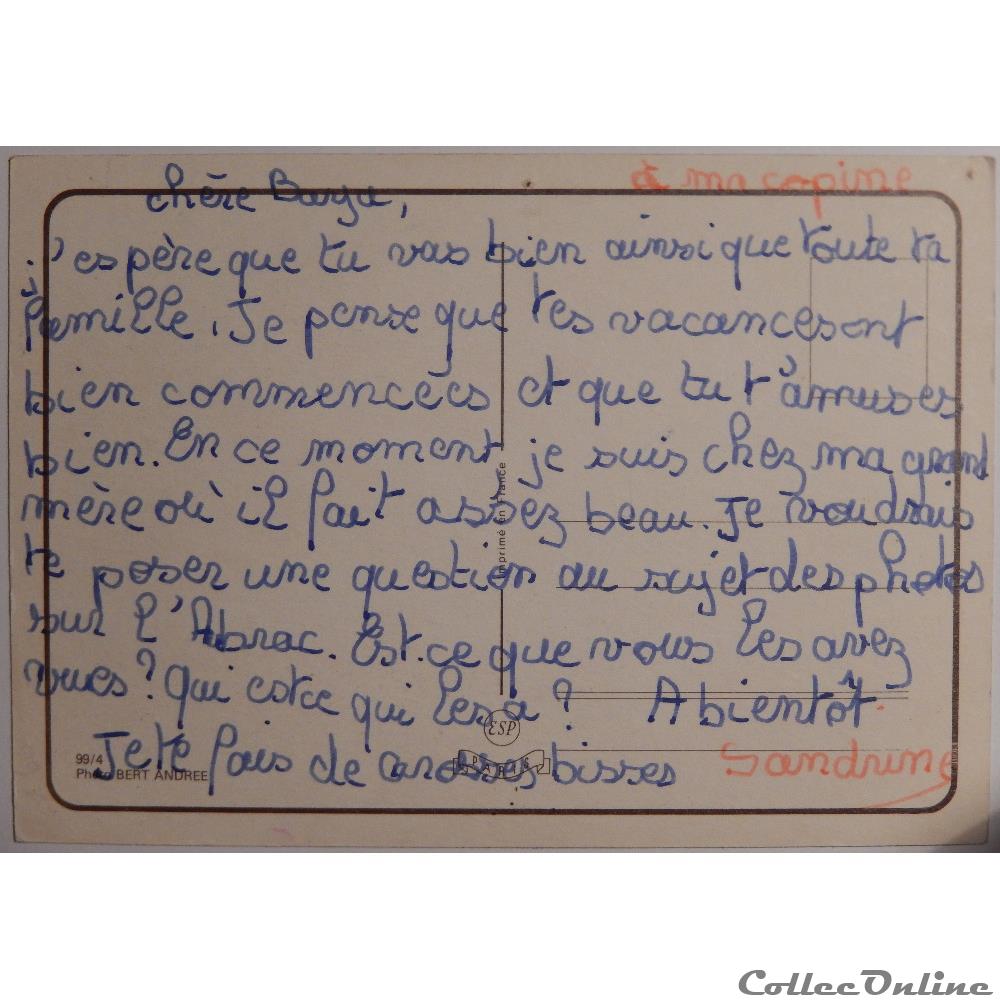 à ma copine
chère Baya,
j'espère que tu vas bien ainsi que toute ta
famille. Je pense que tes vacances ont
bien commencées et que tu t'amuses
bien. En ce moment je suis chez ma grand
mère où il fait assez beau. Je voudrais
te poser une question au sujet des photos
sur l'Abrac. Est-ce que vous les avez
vues? Qui est ce qui les a? A bientôt
Je te fais de grosses bisses Sandrine
Imprimé en France
ESP
PARIS
99/4
Photo BERT ANDREE
CollecOnline